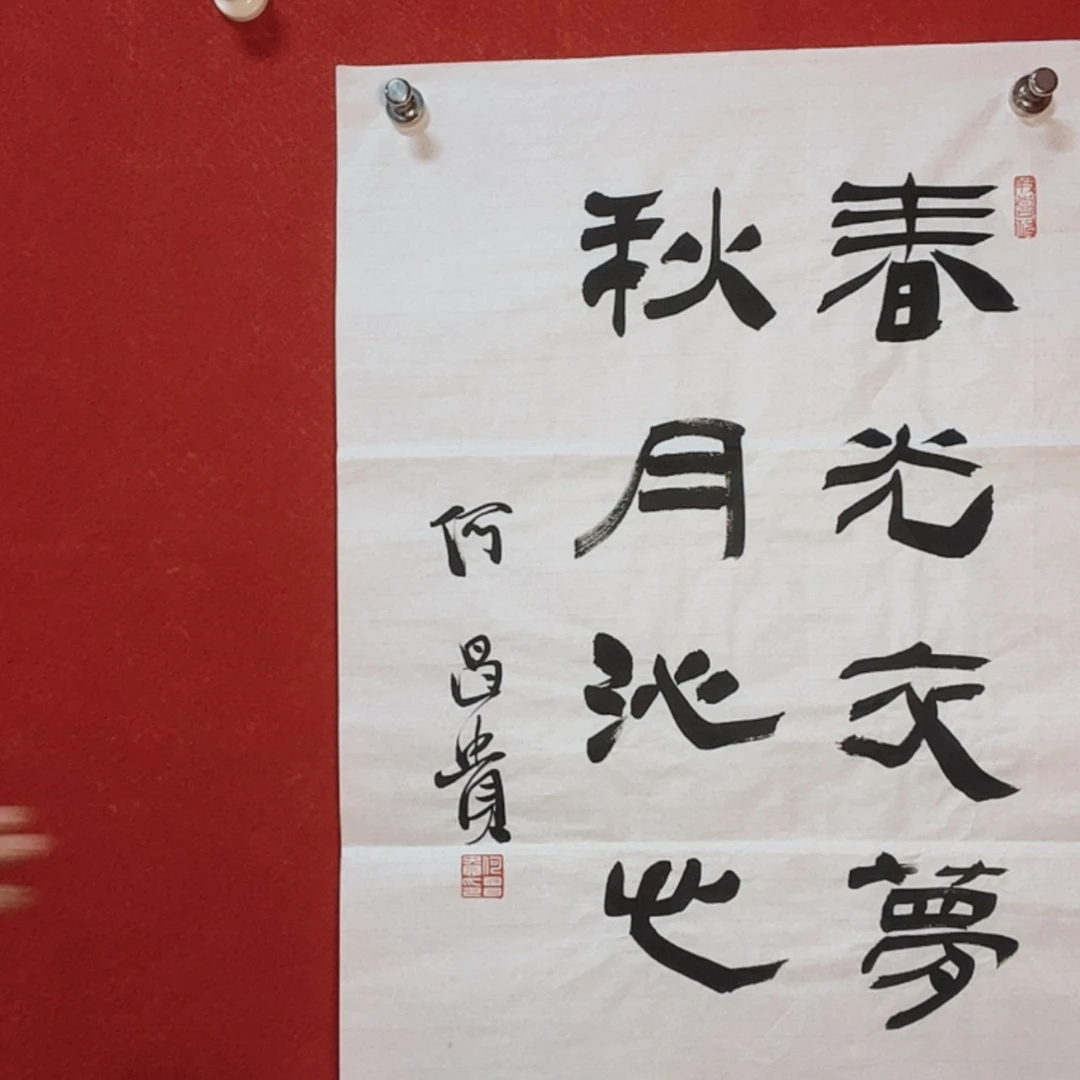 春光交夢
秋月沁心
何昌貴